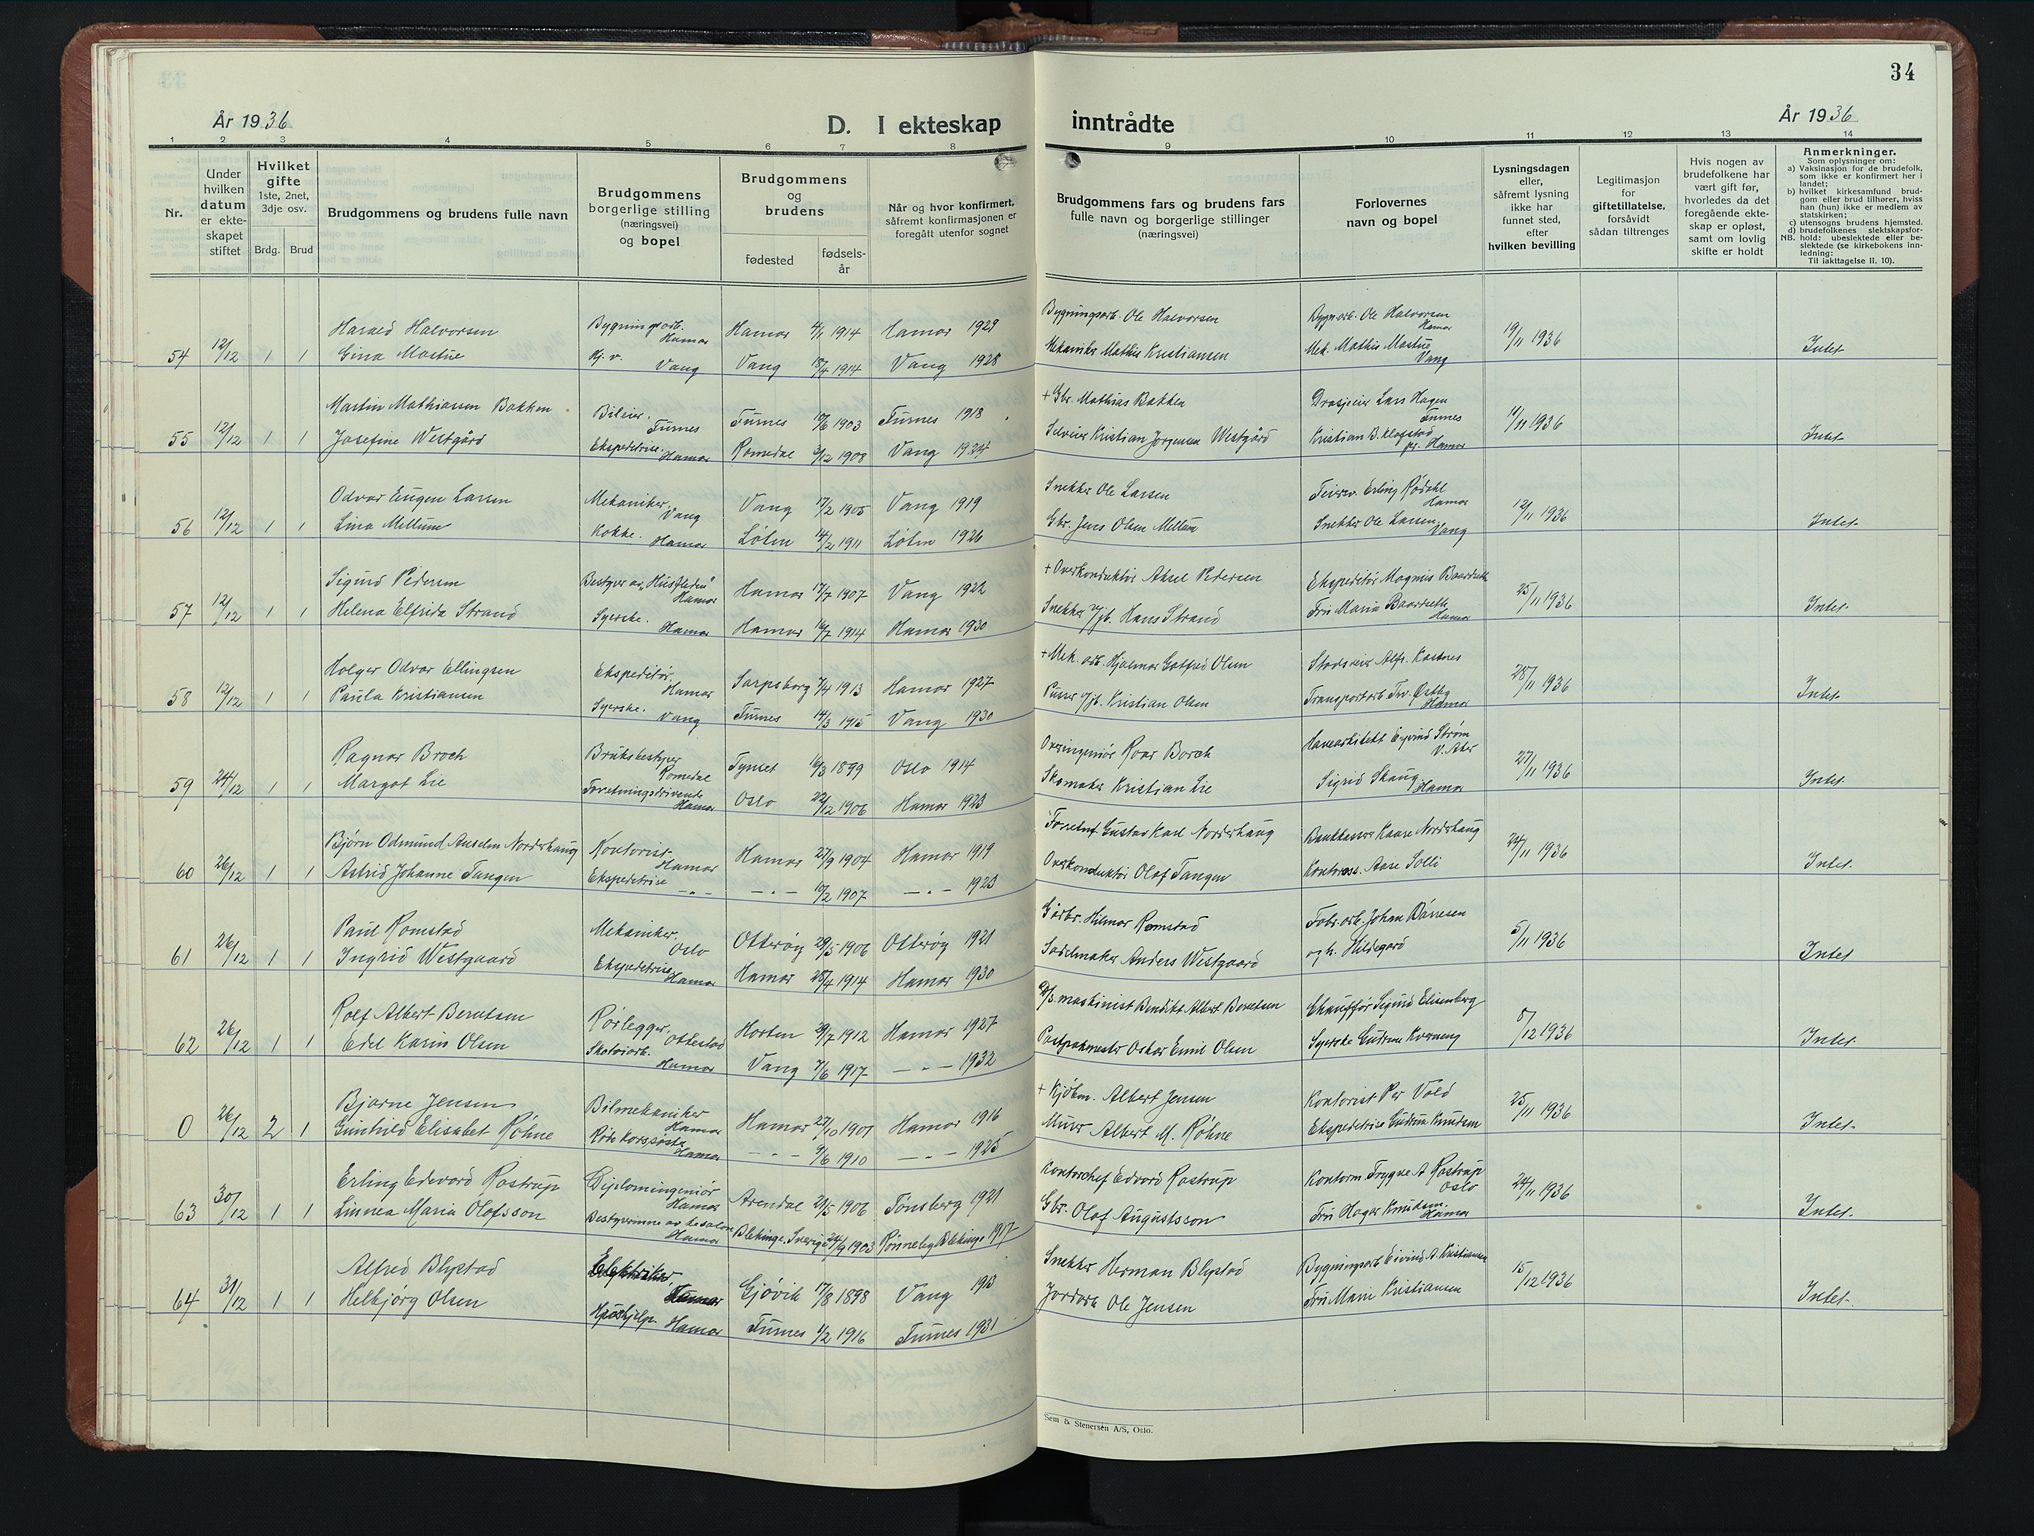 34
År 1936
D. I ekteskap inntrådte
År 1936
1 2 3 4 5 6 7 8 9 10 11 12 13 14
Nr.
Under hvilken datum er ekteskapet stiftet
Hvilket gifte 1ste, 2net, 3dje osv.
Brdg. Brud
Brudgommens og brudens fulle navn
Brudgommens borgerlige stilling (næringsvei) og bopel
Brudgommens og brudens
fødested
fødselsår
Når og hvor konfirmert, såfremt konfirmasjonen er foregått utenfor sognet
Brudgommens fars og brudens fars fulle navn og borgerlige stillinger (næringsvei)
Forlovernes navn og bopel
Lysningsdagen eller, såfremt lysning ikke har funnet sted, efter hvilken bevilling
Legitimasjon for giftetillatelse, forsåvidt sådan tiltrenges
Hvis nogen av brudefolkene har vært gift før, hvorledes da det foregående ekteskap er opløst, samt om lovlig skifte er holdt
Anmerkninger.
Som oplysninger om:
a) Vaksinasjon for de brudefolk, som ikke er konfirmert her i landet;
b) hvilket kirkesamfund brudgom eller brud tilhører, hvis han (hun) ikke er medlem av statskirken;
c) utensogns brudens hjemsted.
d) brudefolkenes slektskapsforhold: ubeslektede eller beslektede (se kirkebokens innledning:
NB. Til iakttagelse II. 10).
Harald Halvorsen Bygningsarb. Hamar Hamar 4/1 1914 Hamar 1929 Bygningsarb. Ole Halvorsen Bygn.arb. Ole Halvorsen Hamar
54 12/12 1 1 Gina Mostue Hj. v. Vang Vang 18/4 1914 Vang 1928 Mekaniker Mathis Kristiansen Mek. Mathis Mostue Vang 19/11 1936 Intet
Martin Mathiassen Bakken Bileier. Furnes Furnes 1903 Furnes 1918 + Gbr. Mathias Bakken Drosjeeier Lars Hagen Furnes
55 12/12 1 1 Josefine Westgård Ekspeditrise. Hamar Romedal 3/12 1908 Vang 1924 Selveier Kristian Jørgensen Westgård Kristian B. Klafstad pr. Hamar 14/11 1936 Intet
Odvar Eugen Larsen Mekaniker. Vang Vang 17/2 1905 Vang 1919 Snekker Ole Larsen Erling Rødahl Hamar
56 12/12 1 1 Lina Mellum Kokke. Hamar Løten 14/2 1911 Løten 1926 Gbr. Jens Olsen Mellum Snekker Ole Larsen. Vang 12/11 1936 Intet
Sigurd Pedersen Bestyrer av "Husfliden" Hamar Hamar 17/7 1907 Vang 1922 + Overkonduktør Aksel Pedersen Ekspeditør Magnus Baardseth
57 12/12 1 1 Helena Elfrida Strand Syerske. Hamar Hamar 16/7 1914 Hamar 1930 Snekker v/jb. Hans Strand Fru Maria Baardseth Hamar 25/11 1936 Intet
Holger Odvar Ellingsen Ekspeditør. Hamar Sarpsborg 7/4 1913 Hamar 1927 + Mek. arb. Hjalmar Gotfred Olsen Alfr. Kastnes
58 12/12 1 1 Paula Kristiansen Syerske. Vang Furnes 14/3 1915 Vang 1930 Pusser v/jb. Kristian Olsen Transportarb. Fr. Østby Hamar 28/11 1936 Intet
Ragnar Broch Bruksbestyrer Romedal Tynset 16/3 1899 Oslo 1914 Overingeniør Roar Borch Havearkitekt Eyvind Strøm V. Aker
59 24/12 1 1 Margot Lie Forretningsdrivende Hamar Oslo 22/12 1906 Hamar 1923 Skomaker Kristian Lie Sigrid Skaug Hamar 27/11 1936 Intet
Bjørn Odmund Anselm Nordshaug Kontorist Hamar Hamar 27/9 1904 Hamar 1919 Gustav Karl Nordshaug Bankkasser Kaare Nordshaug
60 26/12 1 1 Astrid Johanne Tangen Ekspeditrise —"— —"— 10/2 1907 —"— 1923 Overkonduktør Olaf Tangen Aase Solli 24/11 1936 Intet
Paul Romstad Mekaniker. Oslo Otterøy 29/5 1906 Otterøy 1921 Gårbr. Hilmar Romstad Fabr. arb. Johan
61 26/12 1 1 Ingrid Westgaard Ekspeditrise Hamar Hamar 28/4 1914 Hamar 1930 Sadelmaker Anders Westgaard og h. Hildegard 5/11 1936 Intet
Rolf Albert Berntsen Rørlegger. Ottestad Horten 29/7 1912 Hamar 1927 maskinist Bendikt Albert Berntsen Chauffør Sigurd Elisenberg
62 26/12 1 1 Edel Karin Olsen Skotøiarb. Hamar Vang 7/6 1917 —"— 1932 Postpakmester Oskar Emil Olsen Syerske Gudrun Kværneng 5/12 1936 Intet
Bjarne Jensen Bilmekaniker Hamar Hamar 27/10 1901 Hamar 1916 + Kjøbm. Albert Jensen Kontorist Per Vold
0 26/12 2 1 Gunhild Elisabet Røhne Røde Korssøster Hamar —"— 9/6 1910 —"— 1925 Murer Albert M. Røhne Ekspeditrise Gudrun Knudsen 25/11 1936 Intet
Erling Edevard Rostrup Diplomingeniør Hamar Arendal 21/5 1906 Tønsberg 1921 Kontorchef Edvard Rostrup Kontorm Trygve A Rostrup Oslo
63 30/12 1 1 Linnea Maria Olofsson Bestyrerinne av Hamar Blekinge. Sverige 24/9 1903 Rønneby Blekinge 1917 Gbr. Olof Augustsson Fru Hagar Knudsen. Hamar 24/11 1936 Intet
Alfred Blystad Elektriker. Hamar Gjøvik 17/8 1898 Vang 1913 Snekker Herman Blystad Bygningsarb Eivind A. Kristiansen
64 31/12 1 1 Helbjørg Olsen Hushjelp. Hamar Furnes 1/2 1916 Furnes 1931 Jordarb Ole Jensen Fru Marie Kristiansen 15/12 1936 Intet
Sem & Stenersen A/S, Oslo.